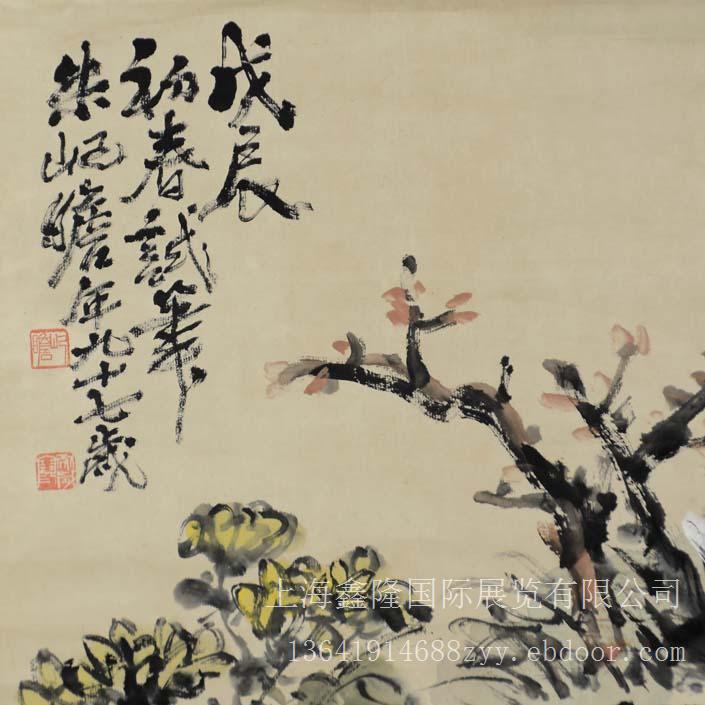 戊辰
初春試筆
朱屺瞻年九十七歲
屺瞻
上海鑫隆国际展览有限公司
13641914688zyy.ebdoor.com